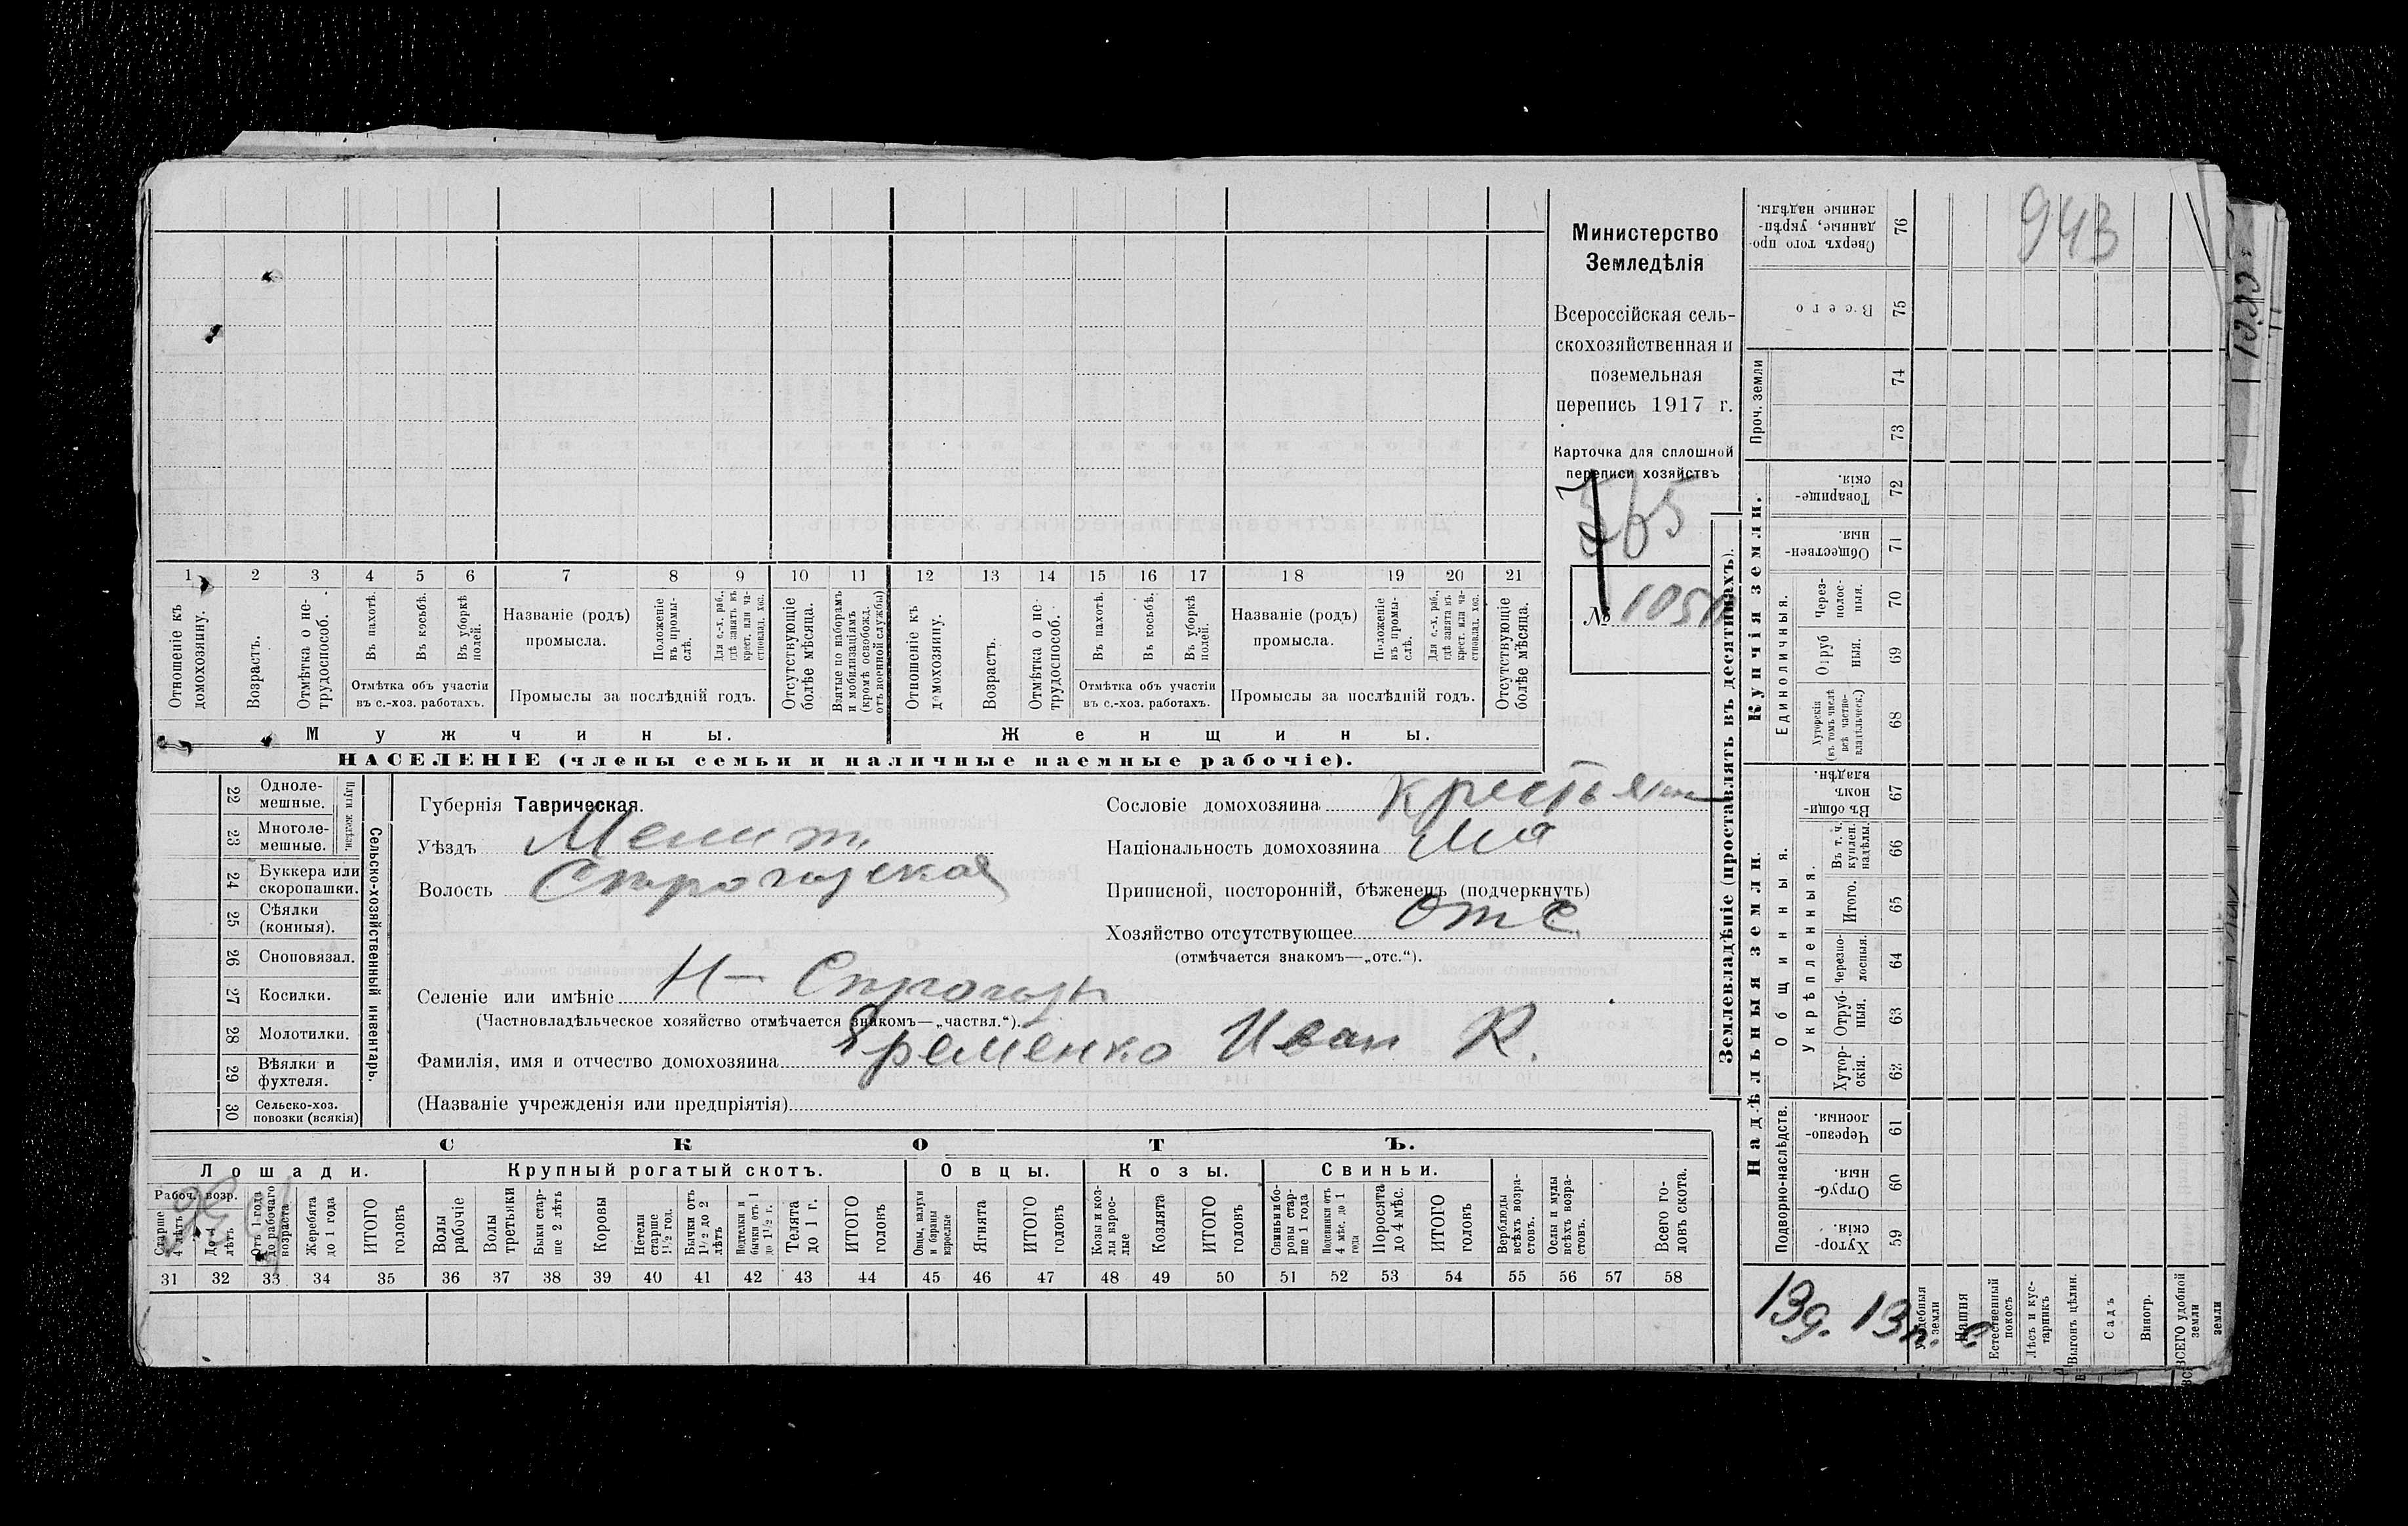 1 2 3 4 5 6 7 8 9 10 11 12 13 14 15 16 17 18 19 20 21
Отношеніе къ домохозяину.
Возрастъ.
Отмѣтка о не-трудоспособ.
Въ пахотѣ.
Въ косьбѣ.
Въ уборкѣ полей.
Отмѣтка объ участіи
въ с.-хоз. работахъ.
Названіе (родъ)
промысла.
Положеніе въ промы-слѣ.
Для с.-х. раб., гдѣ занятъ въ крест. или ча-стновлад. хоз.
Промыслы за послѣдній годъ.
Отсутствующіе болѣе мѣсяца.
Взятые по наборамъ и мобилизаціямъ (кромѣ освобожд. отъ военной службы)
Отношеніе къ домохозяину.
Возрастъ.
Отмѣтка о не-трудоспособ.
Въ пахотѣ.
Въ косьбѣ.
Въ уборкѣ полей.
Отмѣтка объ участіи
въ с.-хоз. работахъ.
Названіе (родъ)
промысла.
Положеніе въ промы-слѣ.
Для с.-х. раб., гдѣ занята въ крест. или ча-стновлад. хоз.
Промыслы за послѣдній годъ.
Отсутствующіе болѣе мѣсяца.
Мужчины.
Женщины.
НАСЕЛЕНІЕ (члены семьи и наличные наемные рабочіе).
Министерство
Земледѣлія
Всероссійская сель-
скохозяйственная и
поземельная
перепись 1917 г.
Карточка для сплошной
переписи хозяйствъ
№
22 Одноле-мешные.
23 Многоле-мешные.
Плуги желѣзн.
24 Буккера или скоропашки.
25 Сѣялки (конныя).
26 Сноповязал.
27 Косилки.
28 Молотилки.
29 Вѣялки и фухтеля.
30 Сельско-хоз. повозки (всякія)
Сельско-хозяйственный инвентарь.
Губернія Таврическая.
Уѣздъ Мелит.
Волость Строгозская
Селеніе или имѣніе Н- Строгозы
(Частновладѣльческое хозяйство отмѣчается знакомъ—„частвл.“).
Фамилія, имя и отчество домохозяина Яременко Иван К.
(Названіе учрежденія или предпріятія)
Сословіе домохозяина крестьян
Національность домохозяина Мо
Приписной, посторонній, бѣженецъ (подчеркнуть)
Хозяйство отсутствующее отс
(отмѣчается знакомъ—„отс.“).
СКОТЪ.
Лошади.
Крупный рогатый скотъ.
Овцы.
Козы.
Свиньи.
Рабоч. возр.
Старше 4 лѣтъ
До 4 лѣтъ
Отъ 1 года до рабочаго возраста
Жеребята до 1 года
ИТОГО головъ
Волы рабочіе
Волы третьяки
Быки стар-ше 2 лѣтъ
Коровы
Нетели старше 1½ год.
Бычки отъ 1½ до 2 лѣтъ
Подтелки и бычки отъ 1 до 1½ г.
Телята до 1 г.
ИТОГО головъ
Овцы, валухи и бараны взрослые
Ягнята
ИТОГО головъ
Козы и коз-лы взрос-лые
Козлята
ИТОГО головъ
Свиньи и бо-ровы стар-ше 1 года
Подсвинки отъ 4 мѣс. до 1 года
Поросята до 4 мѣс.
ИТОГО головъ
Верблюды всѣхъ возра-стовъ.
Ослы и мулы всѣхъ возра-стовъ.
Всего го-ловъ скота.
31 32 33 34 35 36 37 38 39 40 41 42 43 44 45 46 47 48 49 50 51 52 53 54 55 56 57 58
Землевладѣніе (проставлять въ десятинахъ).
943
Сверхъ того про-данные, укрѣп-ленные надѣлы. 76
Всего 75
Проч. земли 74
73
Купчія земли.
Товарище-скія. 72
Обществен-ныя. 71
Единоличныя.
Через-полос-ныя. 70
Отруб ныя. 69
Хуторскія (въ томъ числѣ всѣ частно-владѣльческ.) 68
Надѣльныя земли.
Общинныя.
Въ общин-номъ владѣн. 67
Укрѣпленныя.
Въ т. ч. куплен. надѣлы. 66
Итого. 65
Черезпо-лосныя. 64
Отруб-ныя. 63
Хутор-скія. 62
Подворно-наслѣдств.
Черезпо-лосныя. 61
Отруб-ныя. 60
Хутор-скія. 59
13д. 13п.
земли
Пашня
Естественный покосъ
Лѣсъ и кус-тарникъ
Выгонъ цѣлин.
Садъ
Виногр.
ВСЕГО удобной земли
земли